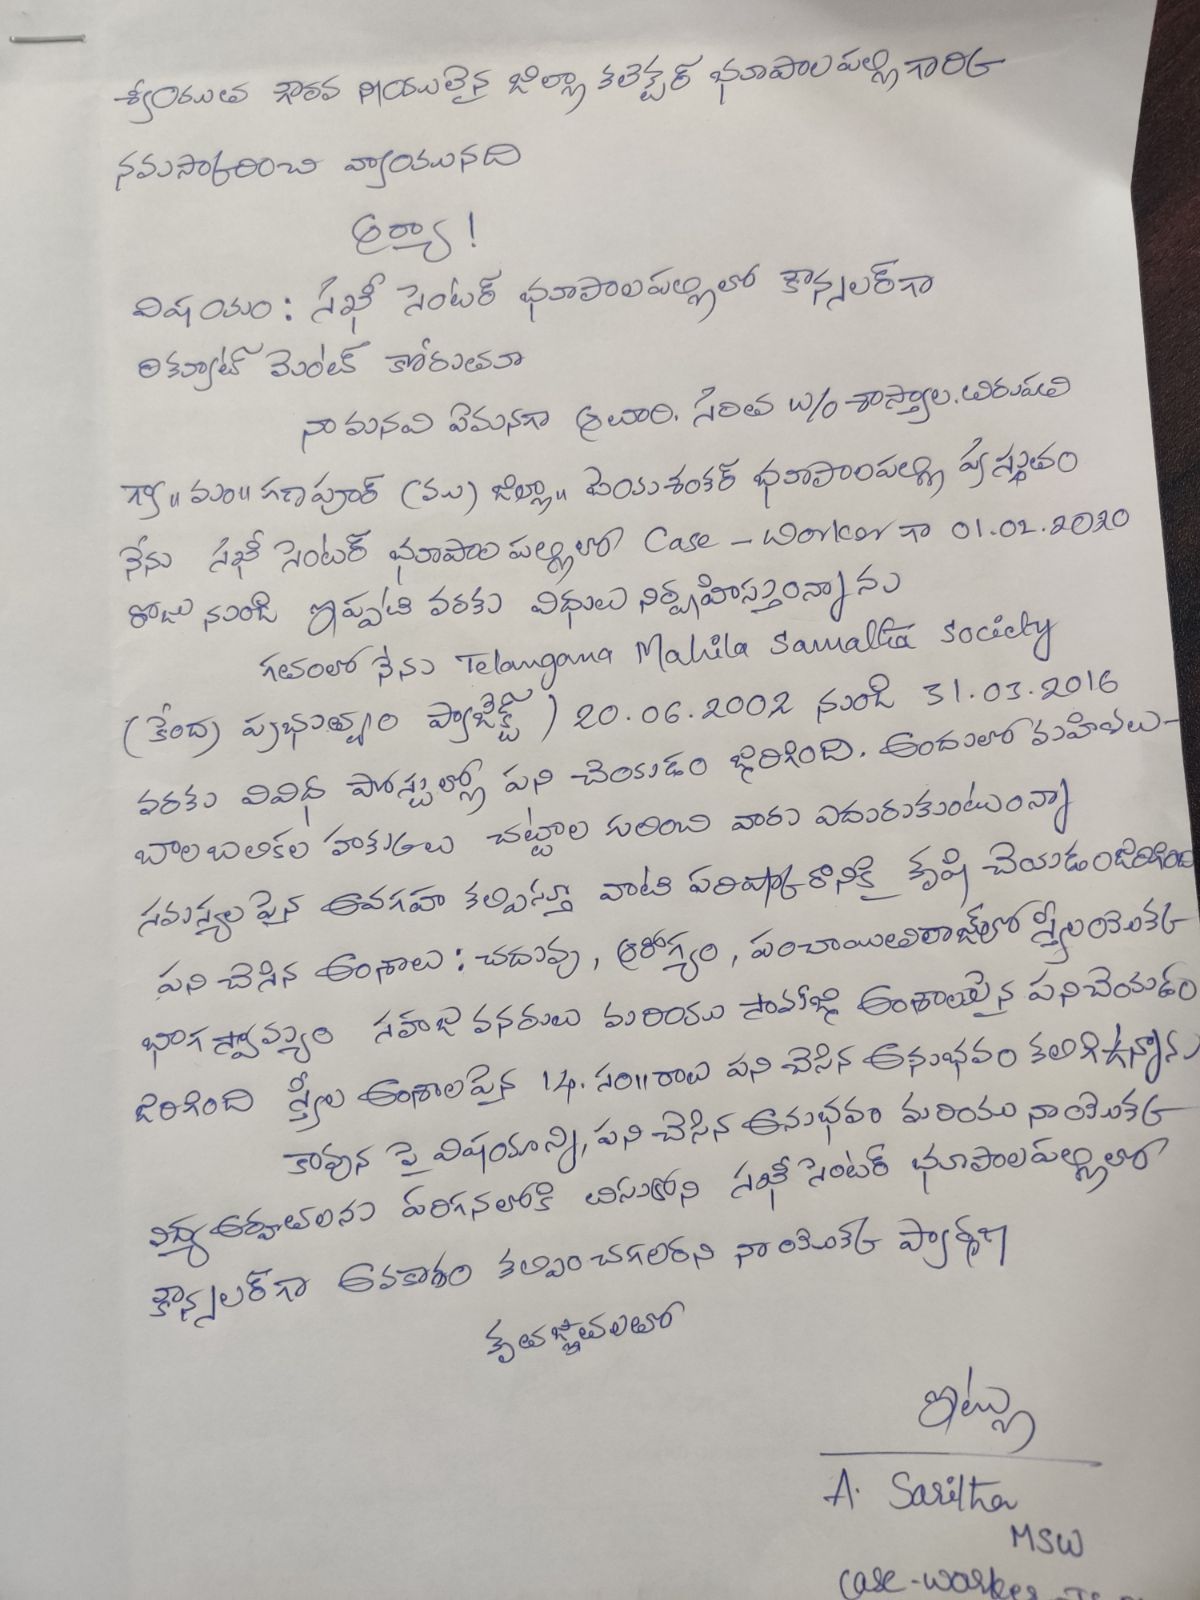 శ్రీయుత గౌరవ నీయులైన జిల్లా కలెక్టర్ భూపాలపల్లి గారికి
నమస్కరించి వ్రాయునది
ఆర్యా !
విషయం : సఖీ సెంటర్ భూపాలపల్లిలో కౌన్సలర్‌గా
రిక్రూట్ మెంట్ కోరుతూ
నా మనవి ఏమనగా ఆలూరి. సరిత w/o శాస్త్రాల. తిరుపతి
గ్రా॥ మం॥ గణపూర్ (ము) జిల్లా॥ జయశంకర్ భూపాలపల్లి ప్రస్తుతం
నేను సఖీ సెంటర్ భూపాల పల్లిలో Case - worker గా 01.02.2020
రోజు నుండి ఇప్పటి వరకు విధులు నిర్వహిస్తున్నాను
గతంలో నేను Telangana Mahila Samatha Society
(కేంద్ర ప్రభుత్వం ప్రాజెక్ట్) 20.06.2002 నుండి 31.03.2016
వరకు వివిధ పోస్టుల్లో పని చేయడం జరిగింది. అందులో మహిళలు-
బాలబలికల హకుకలు చట్టాల గురించి వారు ఎదురుకుంటున్నా
సమస్యల పైన అవగహ కల్పిస్తూ వాటి పరిష్కారానికై కృషి చేయడం జరిగింది
పని చేసిన అంశాలు : చదువు, ఆరోగ్యం, పంచాయితిరాజ్‌లో స్త్రీల యొకక
భాగస్వామ్యం సహజ వనరులు మరియు సామాజిక అంశాలపైన పనిచేయడం
జరిగింది స్త్రీల అంశాలపైన 14. సం॥రాలు పని చేసిన అనుభవం కలిగి ఉన్నాను
కావున పై విషయాన్ని, పని చేసిన అనుభవం మరియు నా యొకక
విద్య అర్హతలను పరిగనలోకి తిసుకోని సఖీ సెంటర్ భూపాలపల్లిలో
కౌన్సలర్‌గా అవకాశం కల్పించగలరని నా యొకక ప్రార్థన
కృతజ్ఞతలతో
ఇట్లు
A. Saritha
MSW
Case-worker